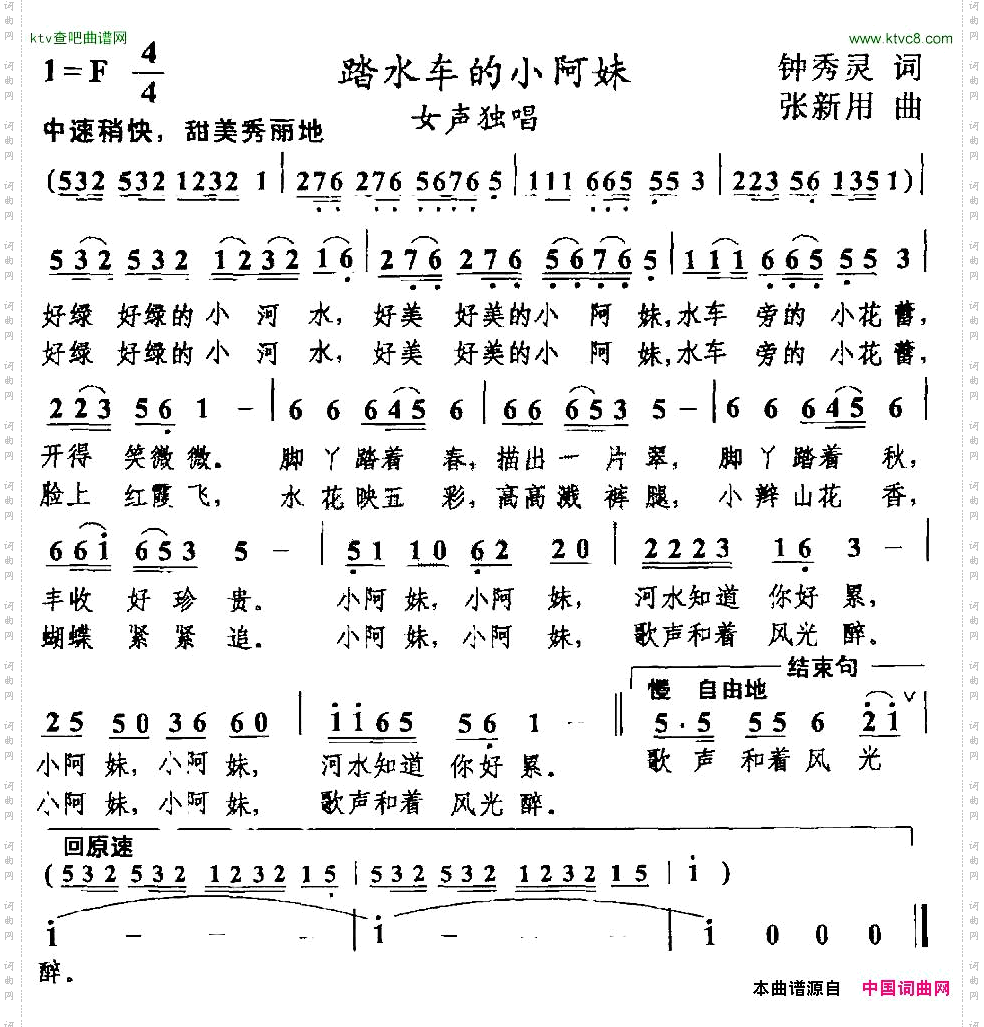 ktv查吧曲谱网
www.ktvc8.com
1=F 4/4
踏水车的小阿妹
钟秀灵 词
女声独唱
张新用 曲
中速稍快，甜美秀丽地
(532 532 1232 1 | 276 276 56765 | 111 665 553 | 223 56 1351) |
532 532 1232 16 | 276 276 56765 | 111 665 55 3 |
好绿 好绿的小 河 水，好美 好美的小 阿 妹，水车 旁的 小花蕾，
好绿 好绿的小 河 水，好美 好美的小 阿 妹，水车 旁的 小花蕾，
223 56 1 － | 6 6 645 6 | 66 653 5－ | 6 6 645 6 |
开得 笑微微。 脚丫踏着 春，描出一片翠，脚丫踏着 秋，
脸上 红霞飞， 水花映五 彩，高高溅裤腿，小辫山花 香，
66i 653 5 － | 51 10 62 20 | 2223 16 3－ |
丰收 好珍贵。 小阿妹，小阿妹， 河水知道 你好累，
蝴蝶 紧紧追。 小阿妹，小阿妹， 歌声和着 风光醉。
结束句
慢 自由地
25 50 36 60 | ii65 56 1 － ‖ 5·5 55 6 2i ∨
小阿妹，小阿妹， 河水知道 你好累。 歌声和着风光
小阿妹，小阿妹， 歌声和着 风光醉。
回原速
(532 532 1232 15 | 532 532 1232 15 | i )
i － － － | i － － － | i 0 0 0 ‖
醉。
本曲谱源自 中国词曲网